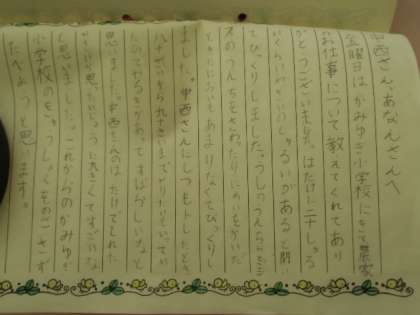 中西さん、あなんさんへ
金曜日は、かみゆぎ小学校にきて農家
お仕事について教えてくれてあり
がとうございました。はたけに二十しゅる
いくらい しゅるいがあると聞い
てびっくりしました。うしのうんち
スのうんちをさわったりにおいをかいだ
ときにおもあまりなくてびっくりし
ました。中西さんにしつもんしたとき
八十さいから九十さいまでやりたいといっていた
のでやる気があってすばらしいなと
思いました。中西さんの はたけでとれた
と思いました。これからのかみゆぎ
小学校のきゅうしょくをのこさず
たべようと思います。